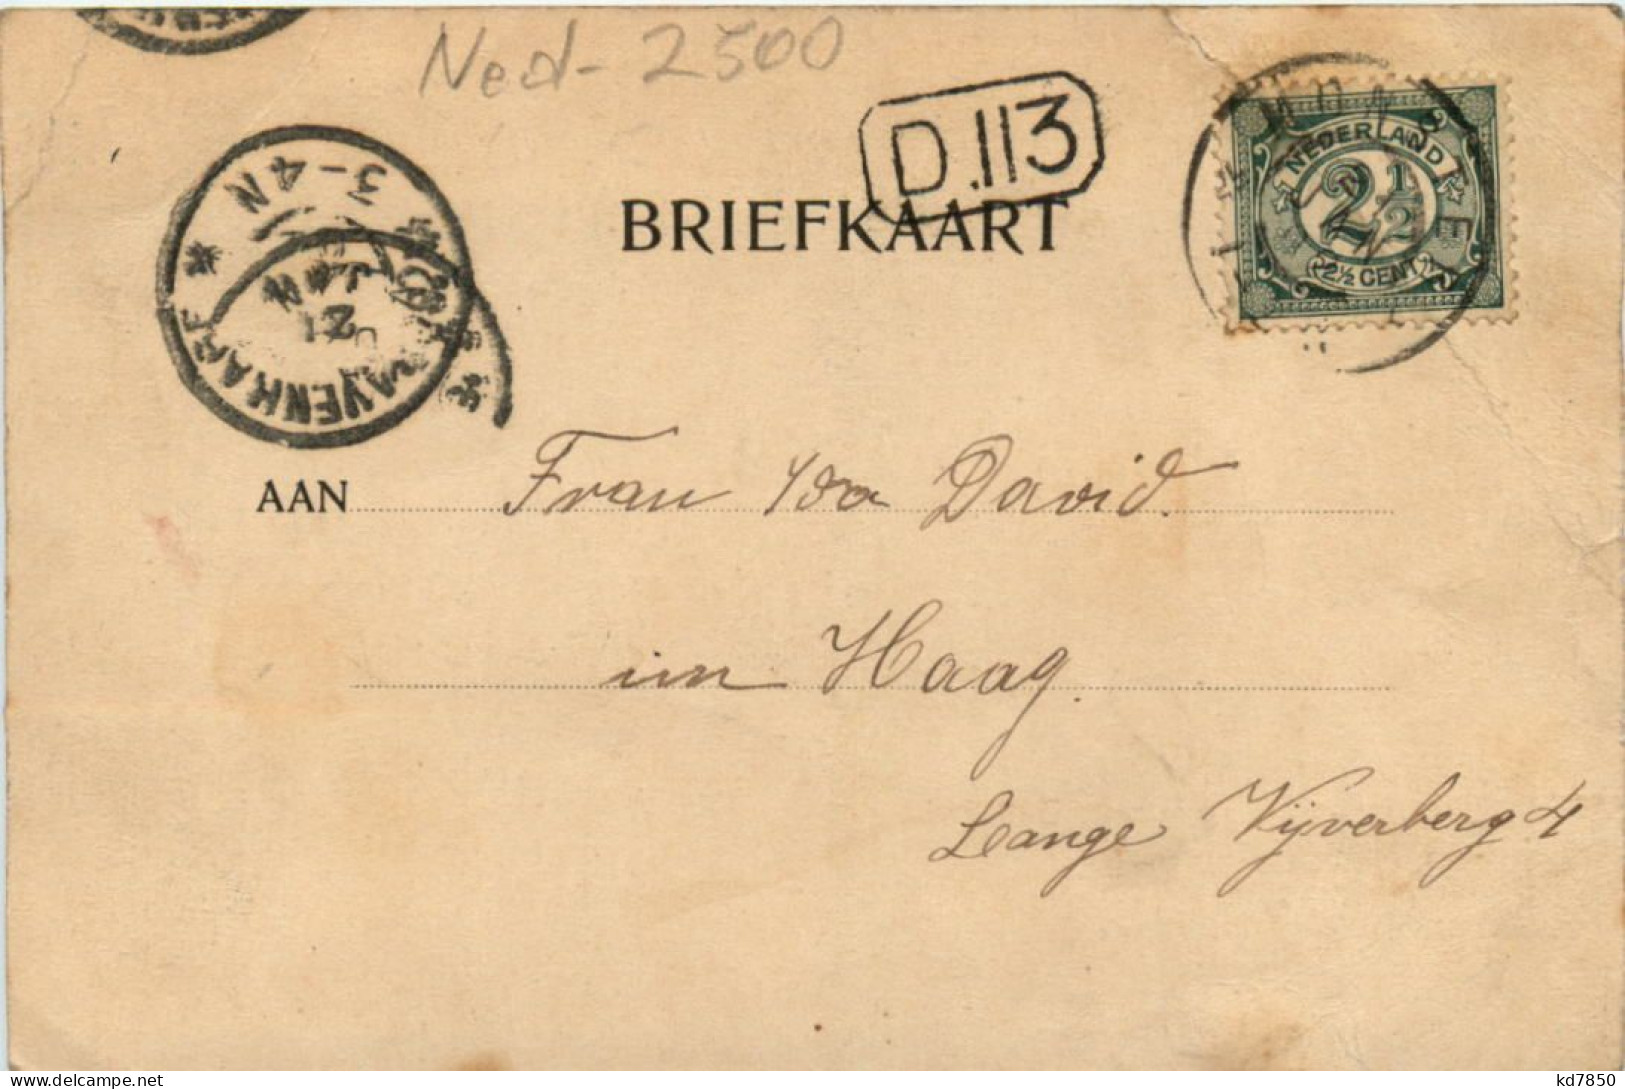 Ned - 2500
D.113
BRIEFKAART
NEDERLAND
2 1/2
2½ CENT
3-4 N
21 JAN
AAN Frau Ida David.
im Haag.
Lange Vijverberg 4
kd7850